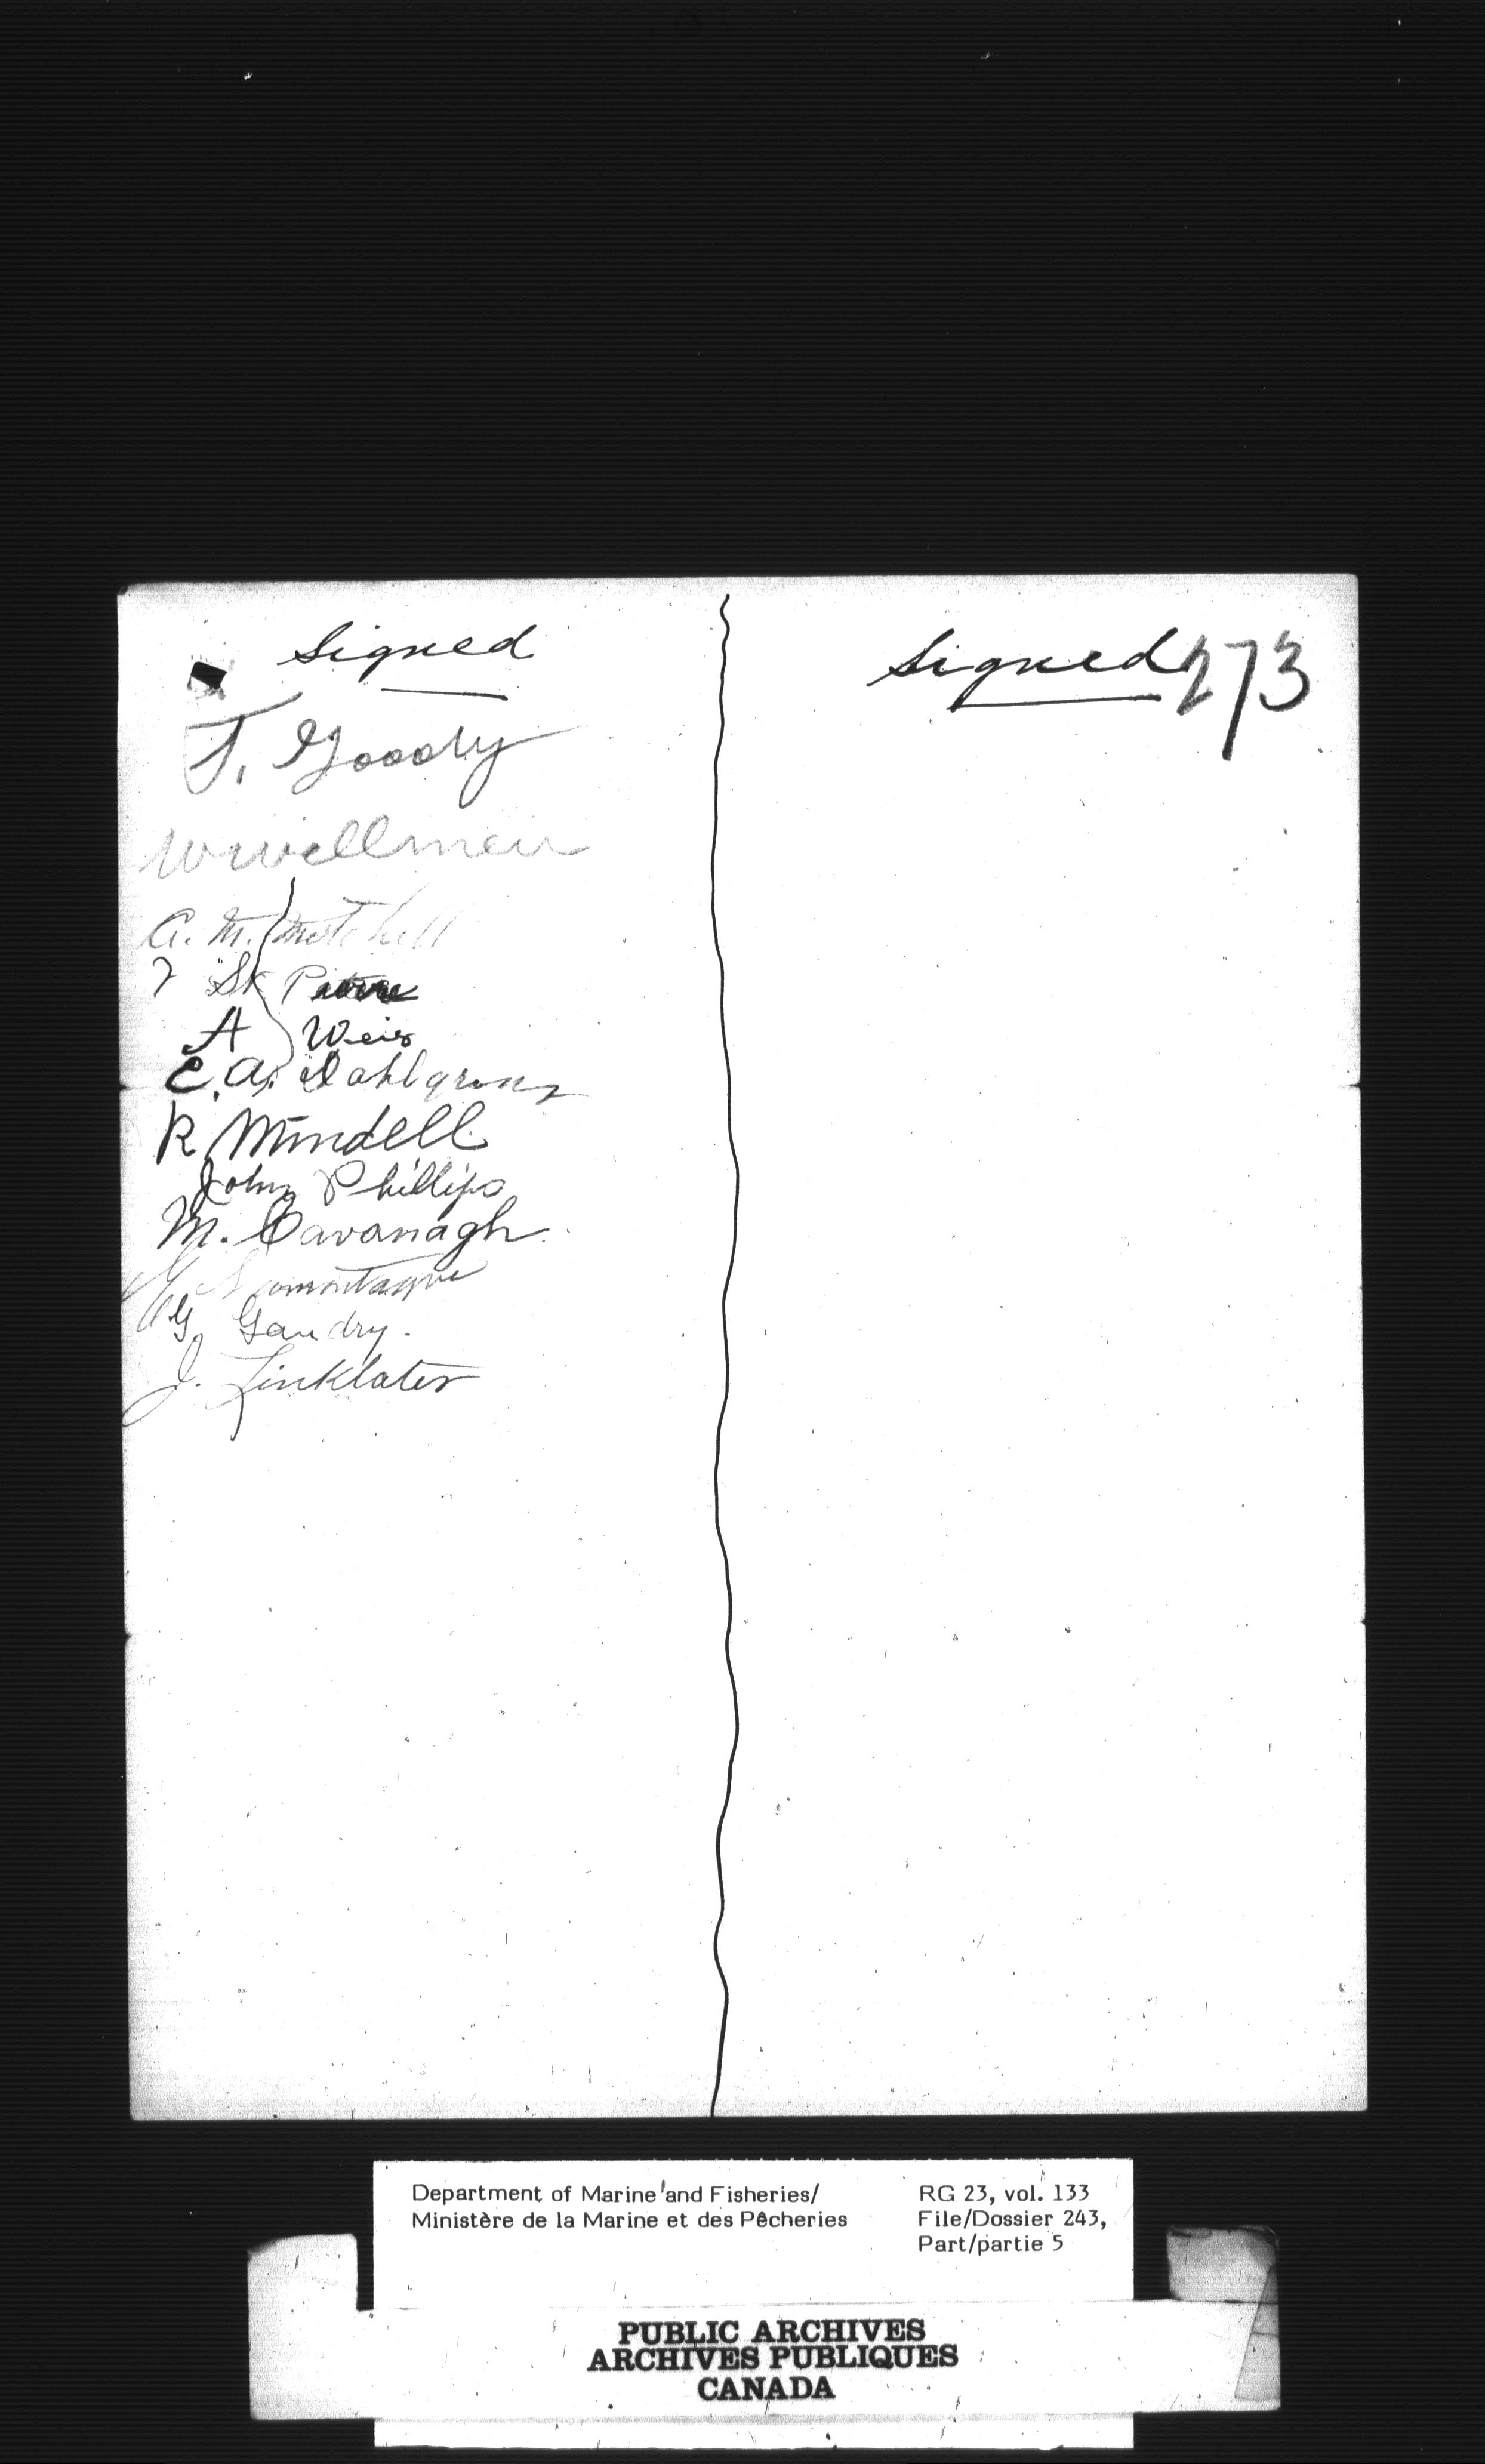 Signed
T. Goody
W Wellmen
A. M. Mitchell
St Pierre
A Weis
E. A. Dahlgren
R Mindell
John Phillips
M. Cavanagh
Lamontagne
G. Gaudry.
J. Linklater
Signed
273
Department of Marine and Fisheries/
Ministère de la Marine et des Pêcheries
RG 23, vol. 133
File/Dossier 243,
Part/partie 5
PUBLIC ARCHIVES
ARCHIVES PUBLIQUES
CANADA